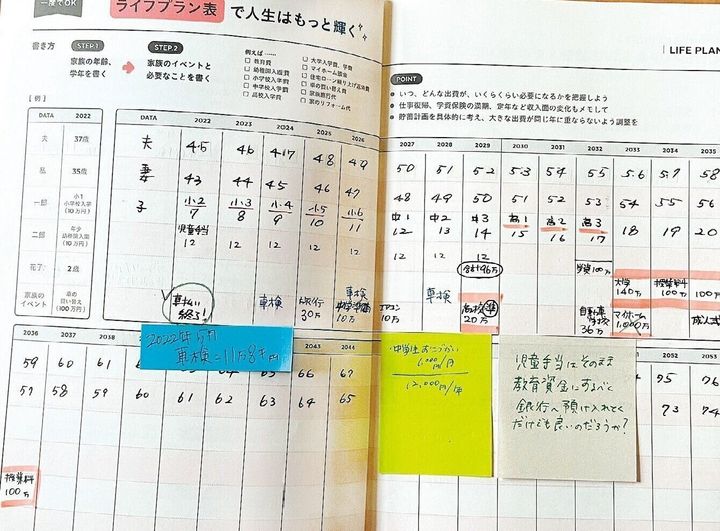 一度でOK
ライフプラン表 で人生はもっと輝く
書き方
STEP.1
家族の年齢、
学年を書く
STEP.2
家族のイベントと
必要なことを書く
例えば ……
□ 教育費
□ 幼稚園入園費
□ 小学校入学費
□ 中学校入学費
□ 高校入学費
□ 大学入学費、学費
□ マイホーム資金
□ 住宅ローン繰り上げ返済費
□ 車の買い替え費
□ 家族旅行代
□ 家のリフォーム代
LIFE PLAN
POINT
いつ、どんな出費が、いくらくらい必要になるかを把握しよう
仕事復帰、学資保険の満期、定年など収入面の変化もメモして
貯蓄計画を具体的に考え、大きな出費が同じ年に重ならないよう調整を
[ 例 ]
DATA 2022
夫 37歳
私 35歳
一郎 小1 小学校入学 (10万円)
二郎 年少 幼稚園入園 (10万円)
花子 2歳
家族のイベント 車の買い替え (100万円)
DATA 2022 2023 2024 2025 2026 2027 2028 2029 2030 2031 2032 2033 2034 2035
夫 45 46 47 48 49 50 51 52 53 54 55 56 57 58
妻 43 44 45 46 47 48 49 50 51 52 53 54 55 56
子 小2 小3 小4 小5 小6 中1 中2 中3 高1 高2 高3
7 8 9 10 11 12 13 14 15 16 17 18 19 20
児童手当
12 12 12 12 12 12 12 12
合計96万
学資100万
大学 140万
授業料 100万
100万
車払い終了!
車検
旅行 30万
車検
中学準備 10万
エアコン 10万
車検
高校準 20万
自動車学校 36万
マイホーム 1,000万
成人式
2036 2043 2044
59 60 61 62 63 64 65 66 67
57 58 59 60 61 62 63 64 65
75 76
73 74
授業料 100万
2022年5月
車検=11万8千円
中学生おこづかい
1,000円/月
12,000円/年
児童手当はそのまま
教育資金にするべく
銀行へ預け入れとく
だけでも良いのだろうか?